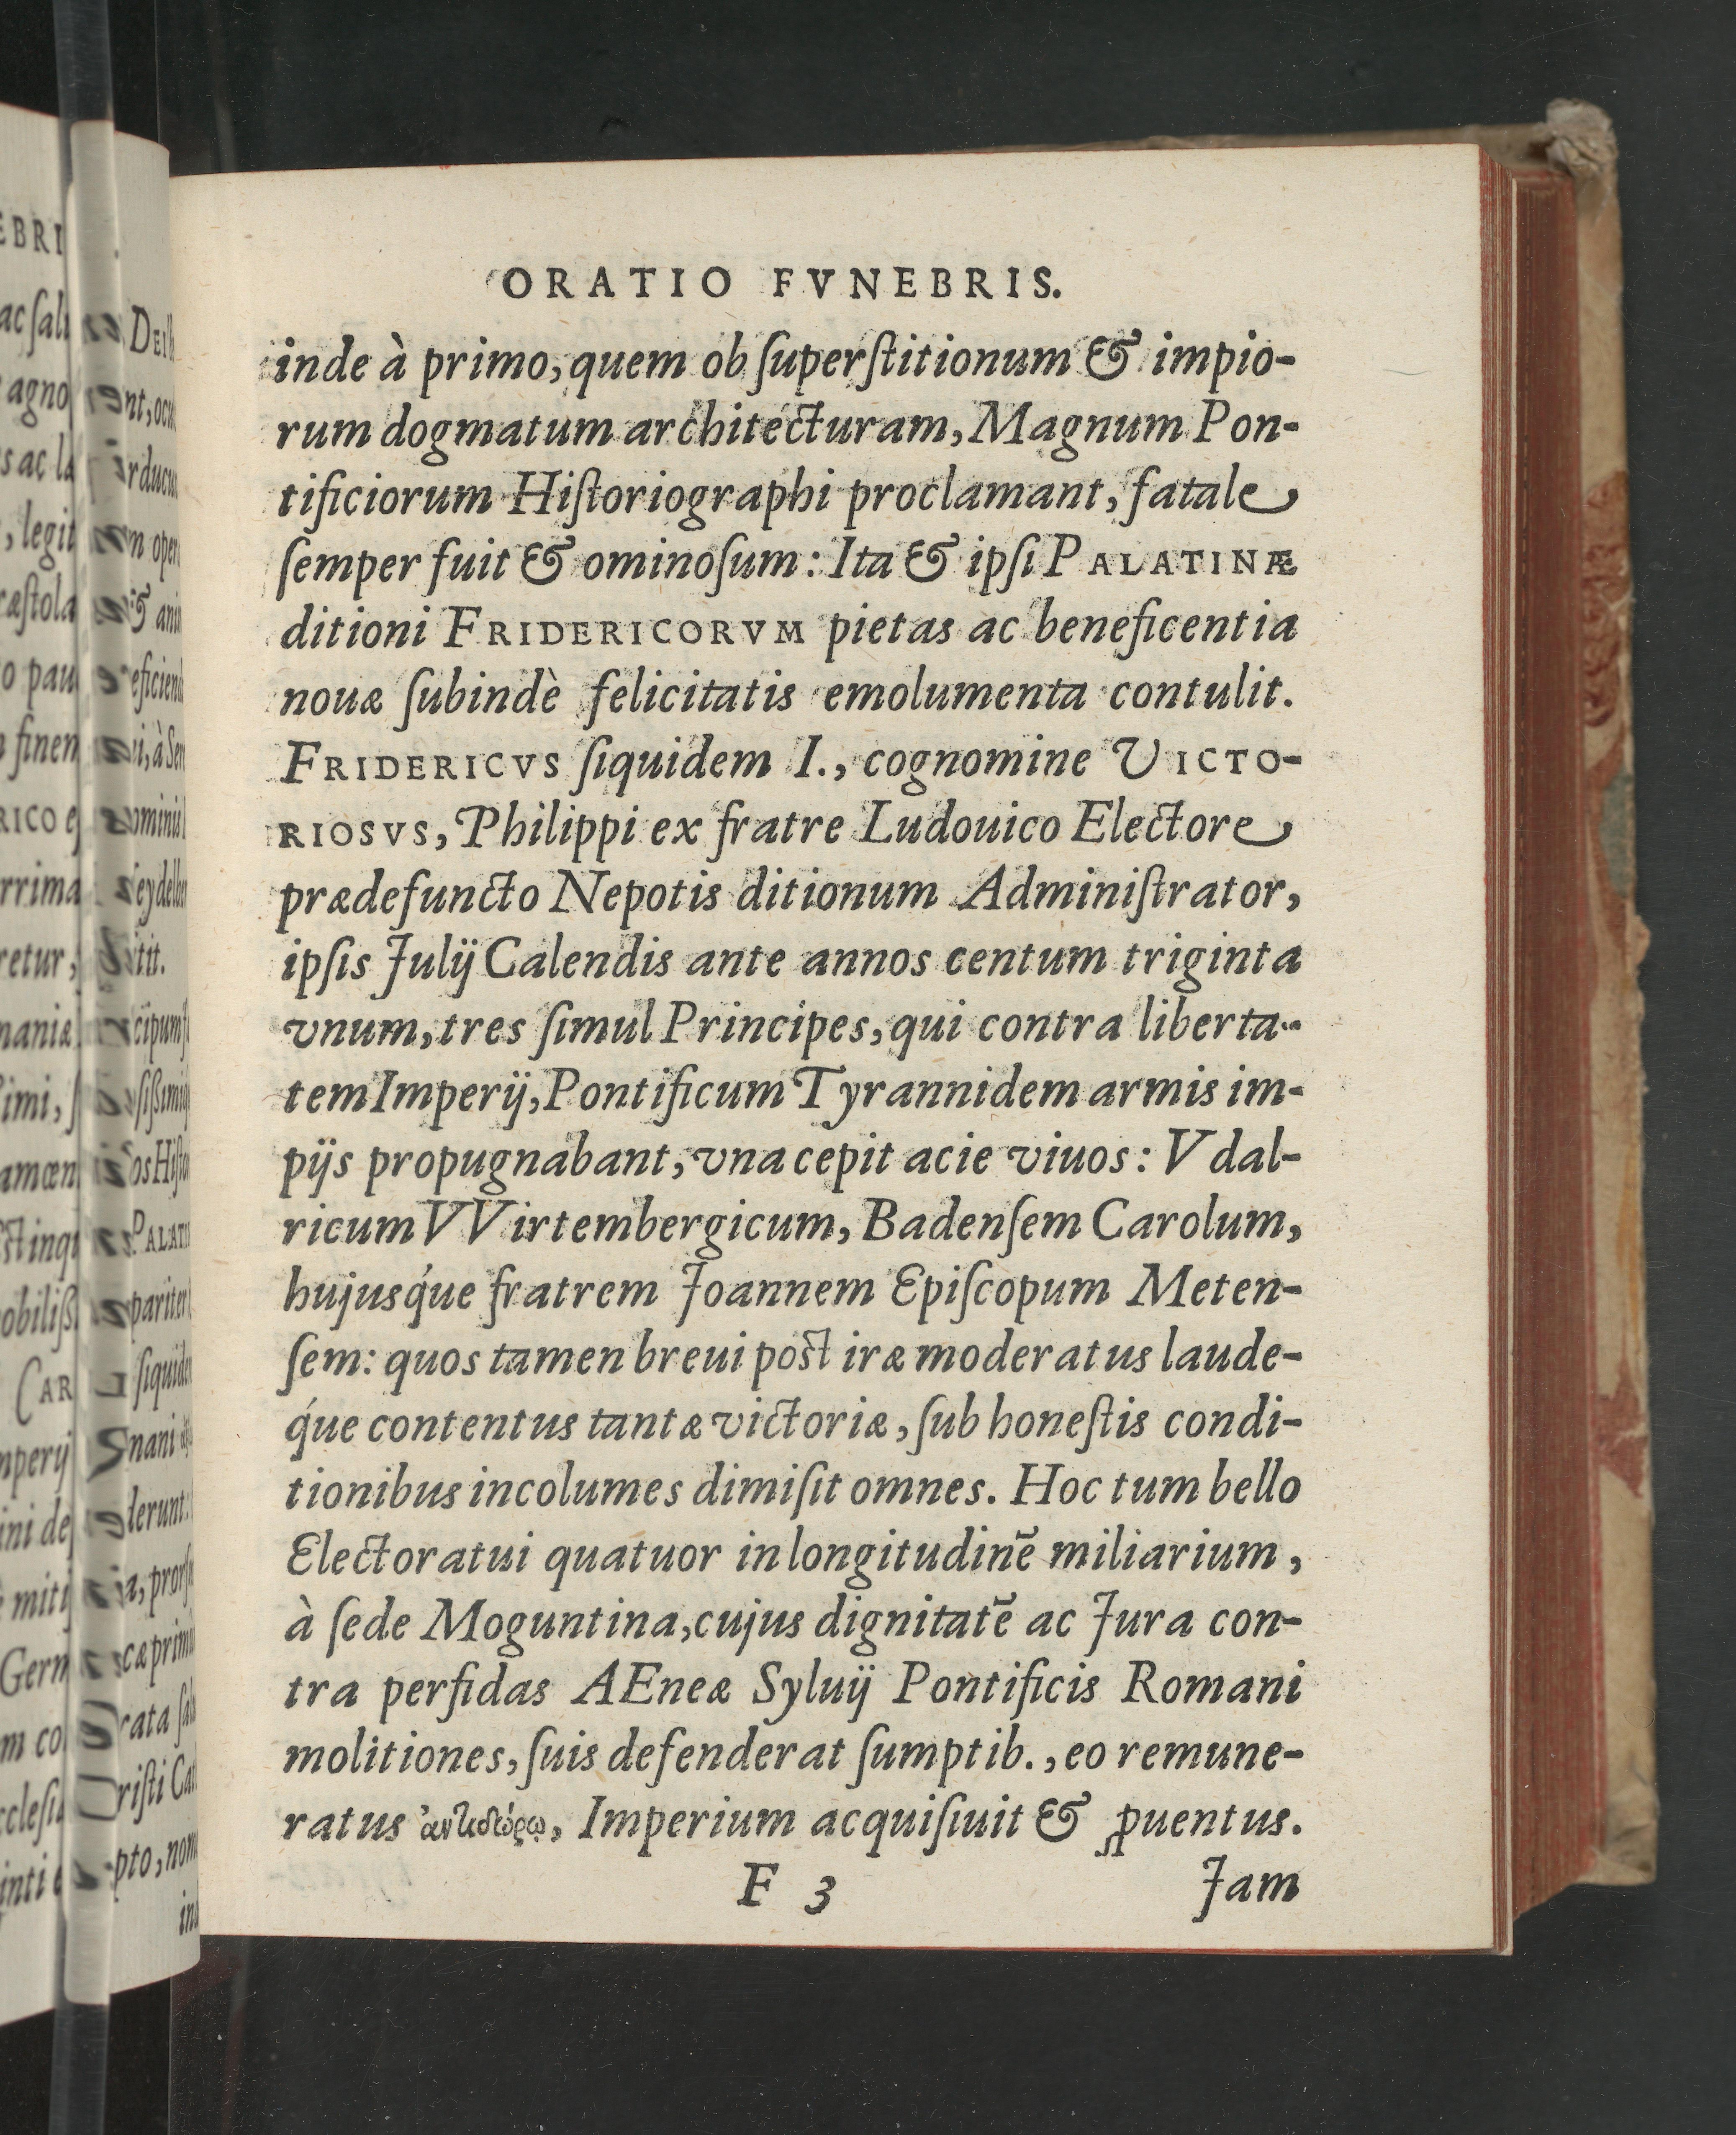 ORATIO FVNEBRIS.
inde à primo, quem ob ſuperſtitionum & impio-
rum dogmatum architecturam, Magnum Pon-
tificiorum Hiſtoriographi proclamant, fatale
ſemper fuit & ominoſum: Ita & ipſi PALATINÆ
ditioni FRIDERICORVM pietas ac beneficentia
nouæ ſubindè felicitatis emolumenta contulit.
FRIDERICVS ſiquidem I., cognomine VICTO-
RIOSVS, Philippi ex fratre Ludouico Electore
prædefuncto Nepotis ditionum Adminiſtrator,
ipſis Julij Calendis ante annos centum triginta
vnum, tres ſimul Principes, qui contra liberta-
tem Imperij, Pontificum Tyrannidem armis im-
pijs propugnabant, vna cepit acie viuos: Vdal-
ricum VVirtembergicum, Badenſem Carolum,
hujusq́ue fratrem Joannem Epiſcopum Meten-
ſem: quos tamen breui poſt iræ moderatus laude-
q́ue contentus tantæ victoriæ, ſub honeſtis condi-
tionibus incolumes dimiſit omnes. Hoc tum bello
Electoratui quatuor in longitudinē miliarium,
à ſede Moguntina, cujus dignitatē ac Jura con-
tra perfidas AEneæ Syluij Pontificis Romani
molitiones, ſuis defenderat ſumptib., eo remune-
ratus ἀντιδώρῳ, Imperium acquiſiuit & ꝓuentus.
F 3 Jam